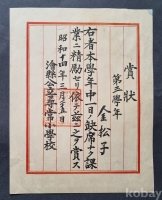 賞狀
第三學年
金松子
右者本學年中一日ノ缺席ナク課
業ニ精勵セリ依テ茲ニ之ヲ賞ス
昭和十四年三月二十五日
公立尋常小學校
kobay